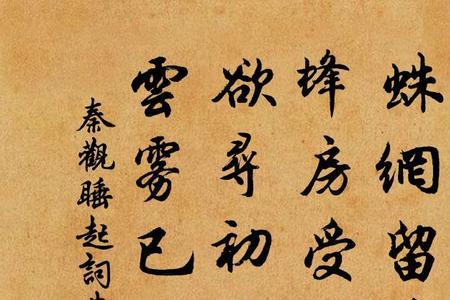 蛛網留
蜂房受
欲尋初
雲雾已
秦觀睡起詞